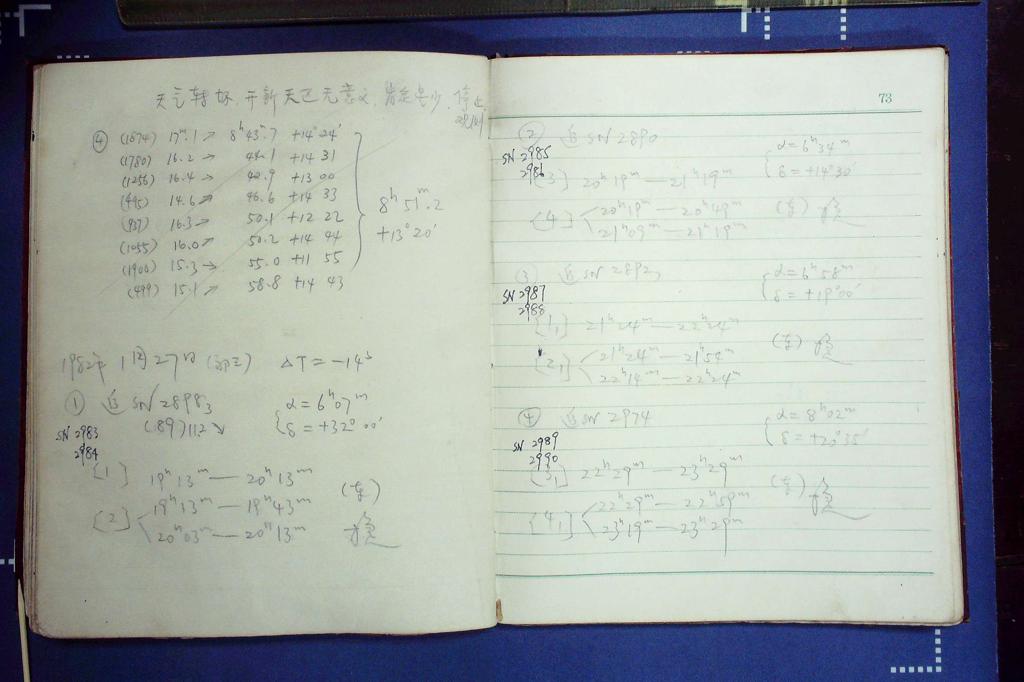 天气转坏,开新天区无意义,肯定是少,停止
观测
④ (1674) 17ᵐ.1 → 8ʰ 43ᵐ.7 +14° 24′
(1780) 16.2 → 44.1 +14 31
(1256) 16.4 → 42.9 +13 00
(495) 14.6 → 46.6 +14 33
(937) 16.3 → 50.1 +12 22
(1055) 16.0 → 50.2 +14 44
(1900) 15.3 → 55.0 +11 55
(499) 15.1 → 58.8 +14 43
8ʰ 51ᵐ.2
+13° 20′
1982年 1月27日 ΔT = -14ˢ
① 近 SN 2898₃ α = 6ʰ 07ᵐ
(89) 11.2 ↘ δ = +32° 00′
SN 2983
2984
[1] 19ʰ 13ᵐ — 20ʰ 13ᵐ
[2] 19ʰ 13ᵐ — 19ʰ 43ᵐ (东)
20ʰ 03ᵐ — 20ʰ 13ᵐ
73
② 近 SN 2890 α = 6ʰ 34ᵐ
SN 2985 δ = +14° 30′
2986
[3] 20ʰ 19ᵐ — 21ʰ 19ᵐ
[4] 20ʰ 19ᵐ — 20ʰ 49ᵐ (东)
21ʰ 09ᵐ — 21ʰ 19ᵐ
③ 近 SN 2892₂ α = 6ʰ 58ᵐ
SN 2987 δ = +19° 00′
2988
[1₁] 21ʰ 24ᵐ — 22ʰ 24ᵐ
[2₁] 21ʰ 24ᵐ — 21ʰ 54ᵐ (东)
22ʰ 14ᵐ — 22ʰ 24ᵐ
④ 近 SN 2974 α = 8ʰ 02ᵐ
SN 2989 δ = +20° 35′
2990
[3₁] 22ʰ 29ᵐ — 23ʰ 29ᵐ
[4₁] 22ʰ 29ᵐ — 22ʰ 59ᵐ (东)
23ʰ 19ᵐ — 23ʰ 29ᵐ